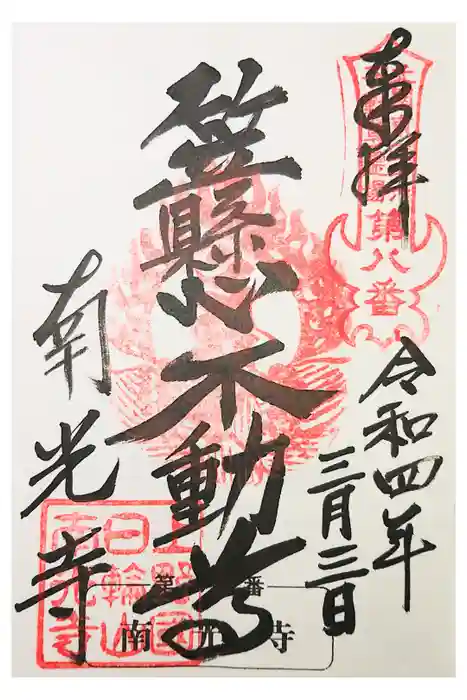 奉拝
第八番
令和四年
三月三日
笠懸不動尊
南光寺
上野國
日輪山
南光寺
第 番
南光寺